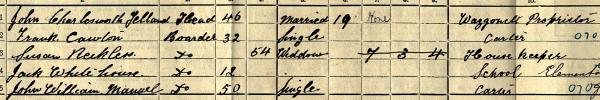 1 John Charlesworth Jelland Head 46 Married 19 None Waggonett Proprietor
2 Frank Cawton Boarder 32 Single Carter 070
3 Susan Reckless Do 54 Widdow 7 3 4 House Keeper
4 Jack Whitehouse Do 12 School Element
5 John William Do 50 Single Carter 070